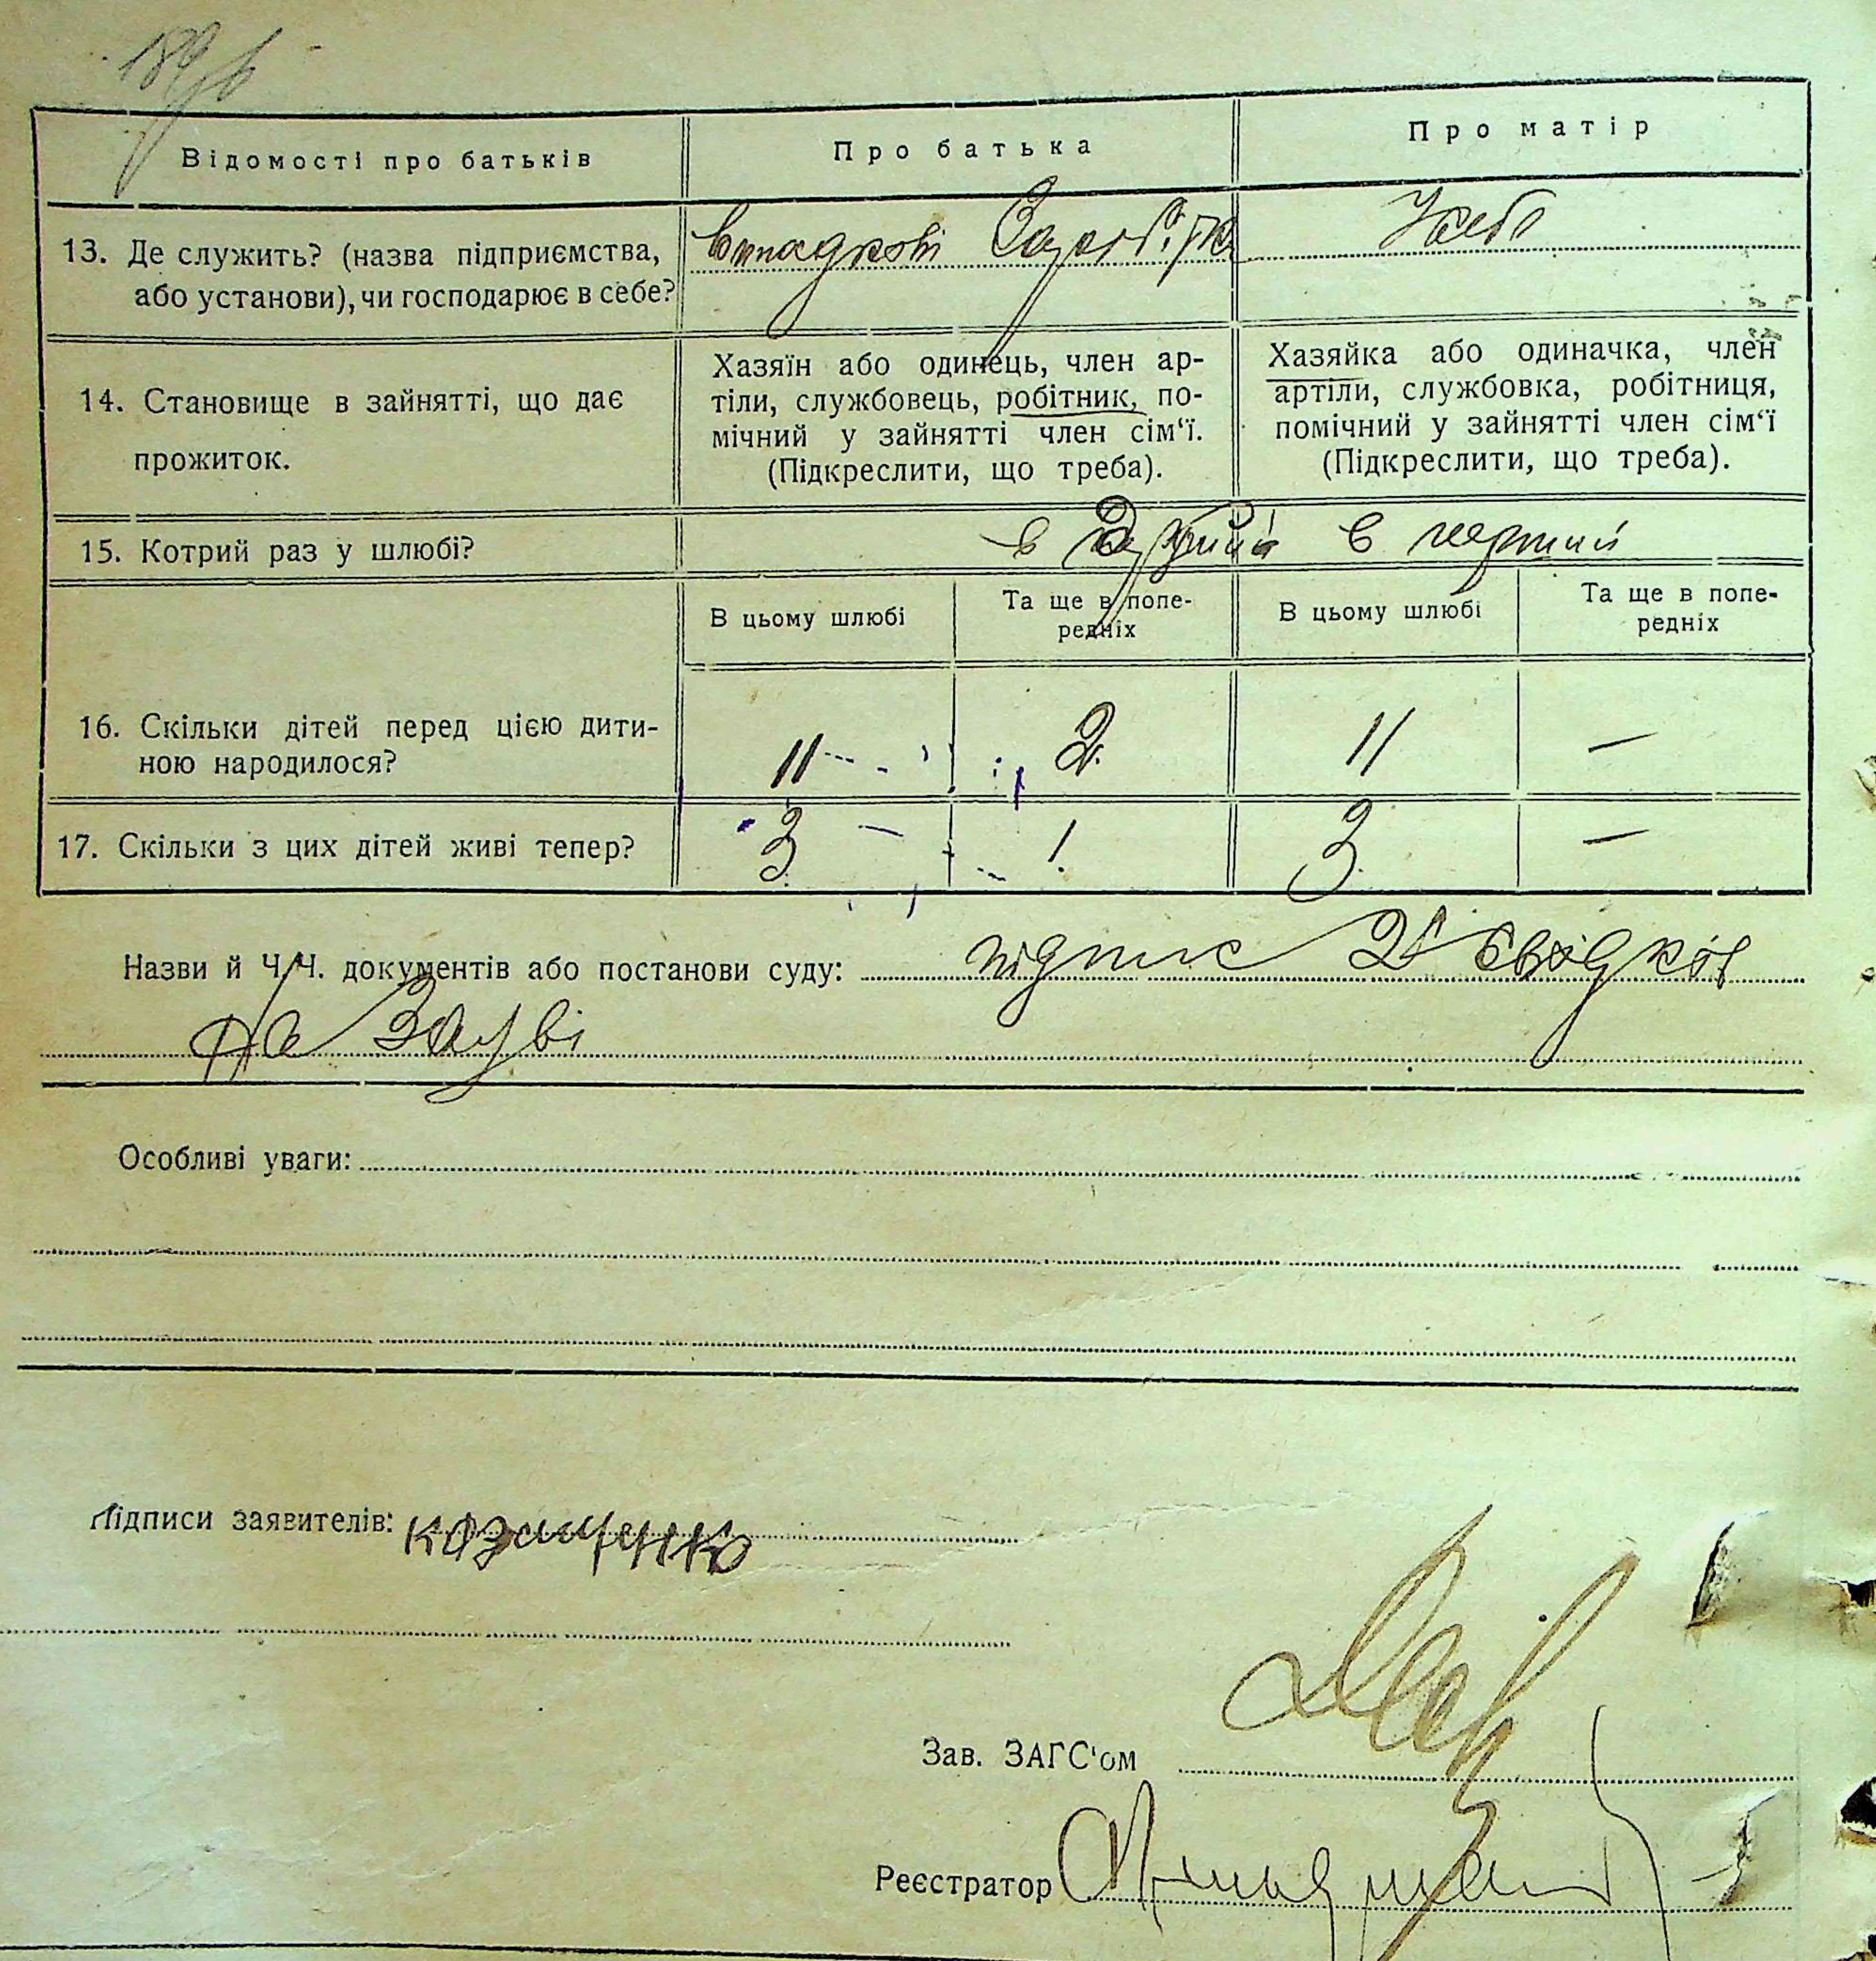 Відомості про батьків
Про батька
Про матір
13. Де служить? (назва підприємства,
або установи), чи господарює в себе?
випадкові
14. Становище в зайнятті, що дає
прожиток.
Хазяїн або одинець, член ар-
тіли, службовець, робітник, по-
мічний у зайнятті член сім'ї.
(Підкреслити, що треба).
Хазяйка або одиначка, член
артіли, службовка, робітниця,
помічний у зайнятті член сім'ї
(Підкреслити, що треба).
15. Котрий раз у шлюбі?
в другий
в перший
В цьому шлюбі
Та ще в попе-
редніх
В цьому шлюбі
Та ще в попе-
редніх
16. Скільки дітей перед цією дити-
ною народилося?
11
2.
11
—
17. Скільки з цих дітей живі тепер?
3.
1.
3.
—
Назви й Ч/Ч. документів або постанови суду: підпис 2х свідків
на Заяві
Особливі уваги:
Підписи заявителів:
Зав. ЗАГС'ом
Реєстратор